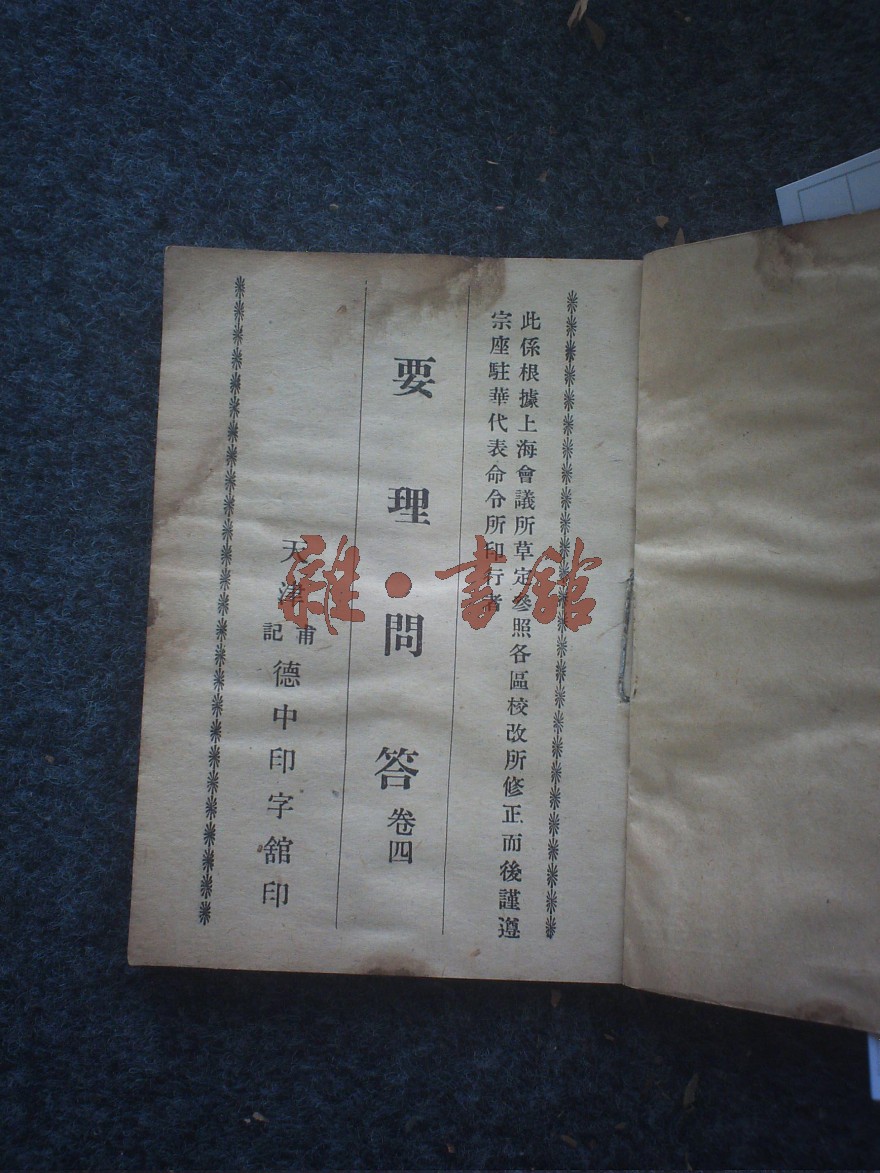 此係根據上海會議所草定參照各區校改所修正而後謹遵
宗座駐華代表命令所印行者
要理問答 卷四
天津
甫記
德中印字舘印
雜·書舘